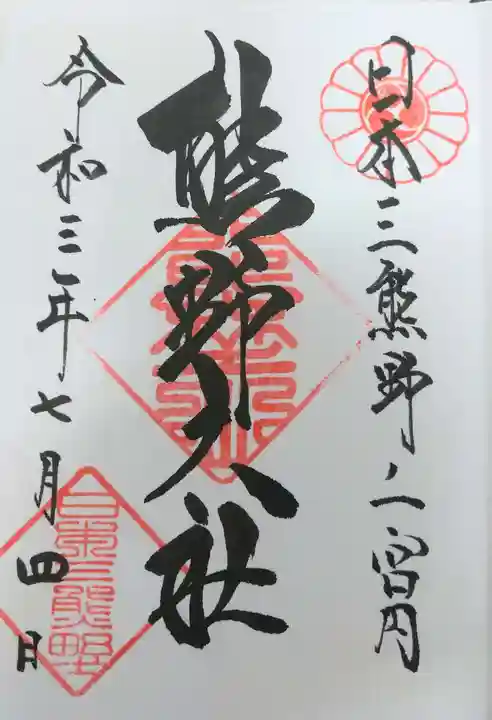 日本三熊野二宮内
熊野大社
令和三年七月四日
日本三熊野